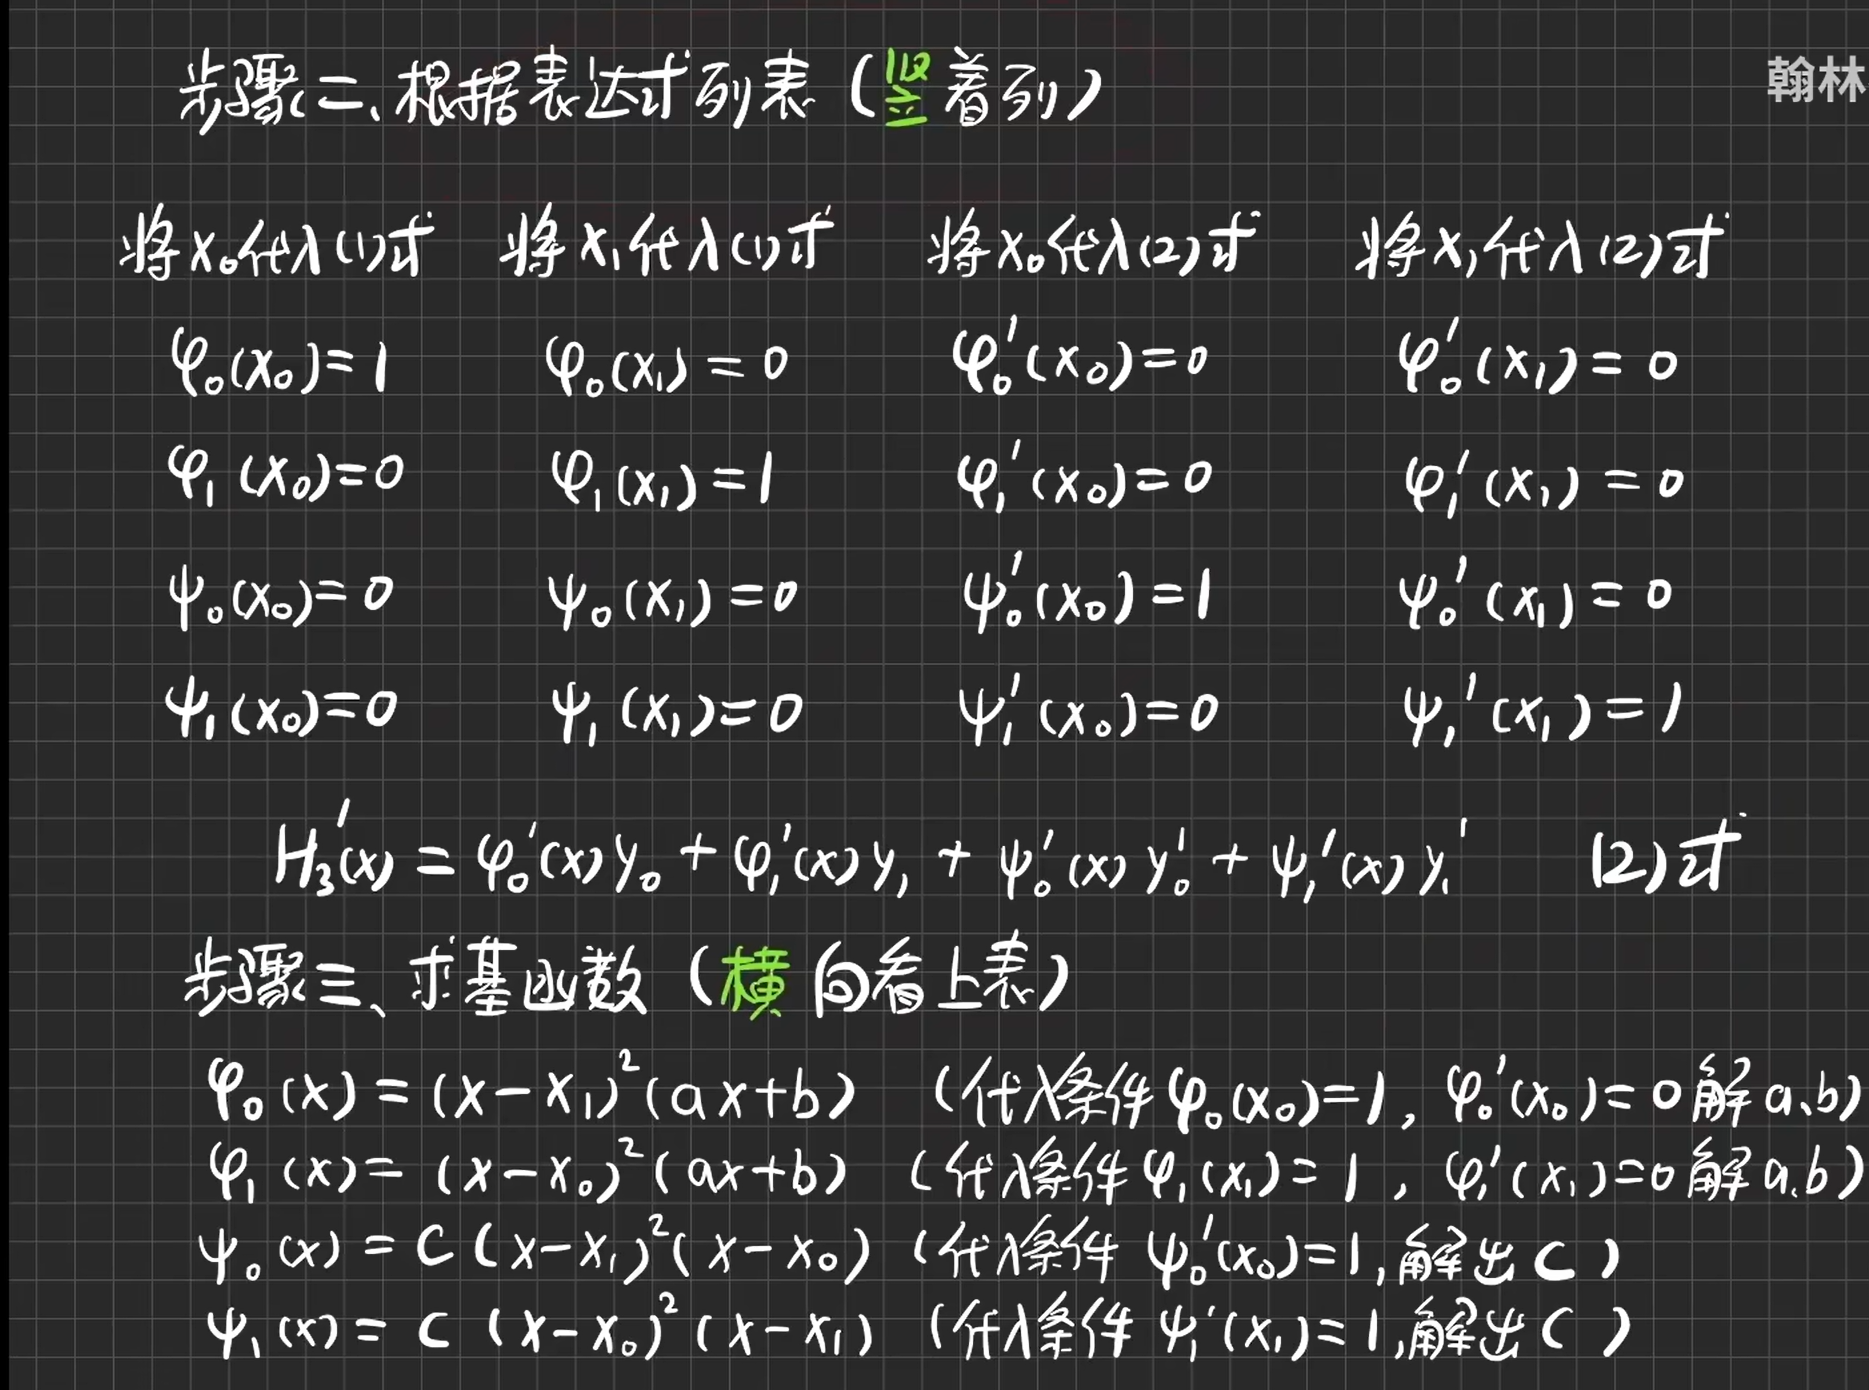 步骤二、根据表达式列表（竖着列）
翰林
将x₀代入(1)式 将x₁代入(1)式 将x₀代入(2)式 将x₁代入(2)式
φ₀(x₀)=1 φ₀(x₁)=0 φ₀'(x₀)=0 φ₀'(x₁)=0
φ₁(x₀)=0 φ₁(x₁)=1 φ₁'(x₀)=0 φ₁'(x₁)=0
ψ₀(x₀)=0 ψ₀(x₁)=0 ψ₀'(x₀)=1 ψ₀'(x₁)=0
ψ₁(x₀)=0 ψ₁(x₁)=0 ψ₁'(x₀)=0 ψ₁'(x₁)=1
H₃'(x)=φ₀'(x)y₀+φ₁'(x)y₁+ψ₀'(x)y₀'+ψ₁'(x)y₁' (2)式
步骤三、求基函数（横向看上表）
φ₀(x)=(x-x₁)²(ax+b) (代入条件φ₀(x₀)=1, φ₀'(x₀)=0解a、b)
φ₁(x)=(x-x₀)²(ax+b) (代入条件φ₁(x₁)=1, φ₁'(x₁)=0解a、b)
ψ₀(x)=C(x-x₁)²(x-x₀) (代入条件ψ₀'(x₀)=1,解出C)
ψ₁(x)=C(x-x₀)²(x-x₁) (代入条件ψ₁'(x₁)=1,解出C)